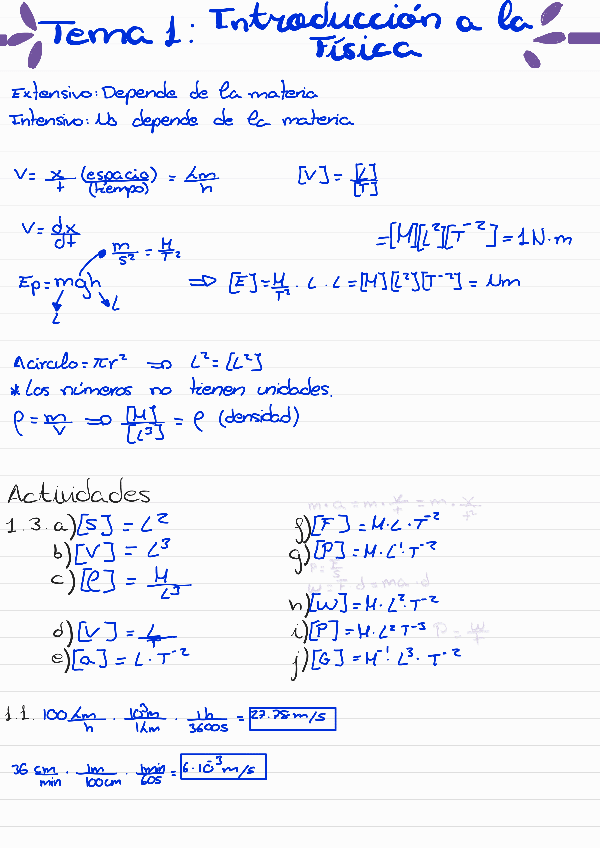 Tema 1: Introducción a la
Física
Extensivo: Depende de la materia
Intensivo: No depende de la materia
V = x/t (espacio)/(tiempo) = km/h
[V] = [L]/[T]
V = dx/dt
m/s² = M/T²
= [M][L²][T⁻²] = 1N·m
Ep = mgh
L
L
⇒ [E] = M/T² · L · L = [M][L²][T⁻²] = Nm
Acirculo = πr² ⇒ L² = [L²]
* Los números no tienen unidades.
ρ = m/V ⇒ [M]/[L³] = ρ (densidad)
Actividades
m·a = m·v/t = m·x/t²
1.3. a) [S] = L²
b) [V] = L³
c) [ρ] = M/L³
d) [V] = L/T
e) [a] = L·T⁻²
f) [F] = M·L·T⁻²
g) [P] = M·L⁻¹·T⁻²
P = F/S
W = F·d = ma·d
h) [W] = M·L²·T⁻²
i) [P] = M·L² T⁻³ P = W/t
j) [G] = M⁻¹·L³·T⁻²
1.1. 100 km/h · 10³m/1km · 1h/3600s = 27.78 m/s
36 cm/min · 1m/100cm · 1min/60s = 6·10⁻³ m/s